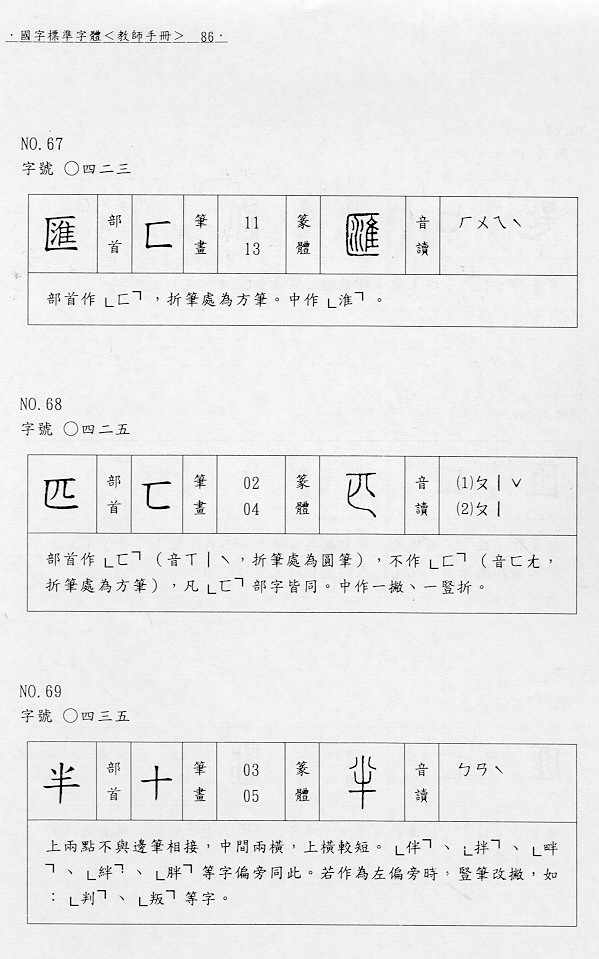 ·國字標準字體<教師手冊> 86·
NO.67
字號 ○四二三
匯 部首 匚 筆畫 11 13 篆體 匯 音讀 ㄏㄨㄟˋ
部首作「匚」，折筆處為方筆。中作「淮」。
NO.68
字號 ○四二五
匹 部首 匸 筆畫 02 04 篆體 匹 音讀 (1)ㄆㄧˇ (2)ㄆㄧ
部首作「匸」（音ㄒㄧˋ，折筆處為圓筆），不作「匚」（音ㄈㄤ，
折筆處為方筆），凡「匸」部字皆同。中作一撇、一豎折。
NO.69
字號 ○四三五
半 部首 十 筆畫 03 05 篆體 半 音讀 ㄅㄢˋ
上兩點不與邊筆相接，中間兩橫，上橫較短。「伴」、「拌」、「畔
」、「絆」、「胖」等字偏旁同此。若作為左偏旁時，豎筆改撇，如
：「判」、「叛」等字。